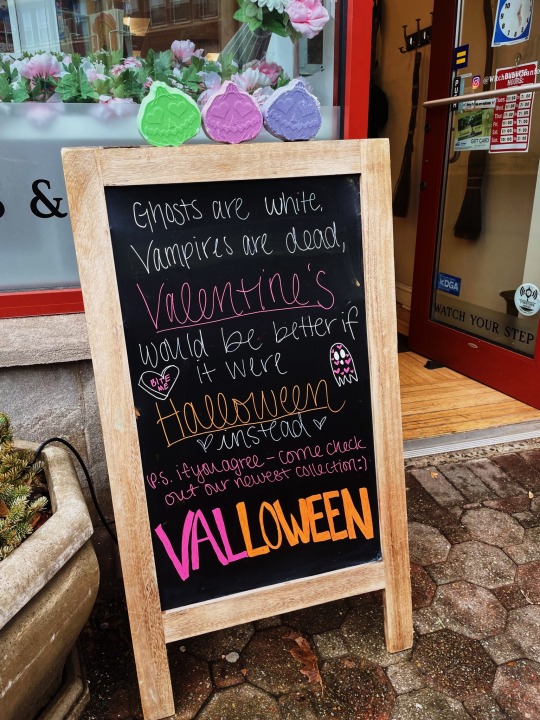 Ghosts are white,
Vampires are dead,
Valentine's
would be better if
it were
BITE
ME
Halloween
instead
p.s. if you agree - come check
out our newest collection :)
VALLOWEEN
&
GIFT CARD
KDGA
WATCH YOUR STEP